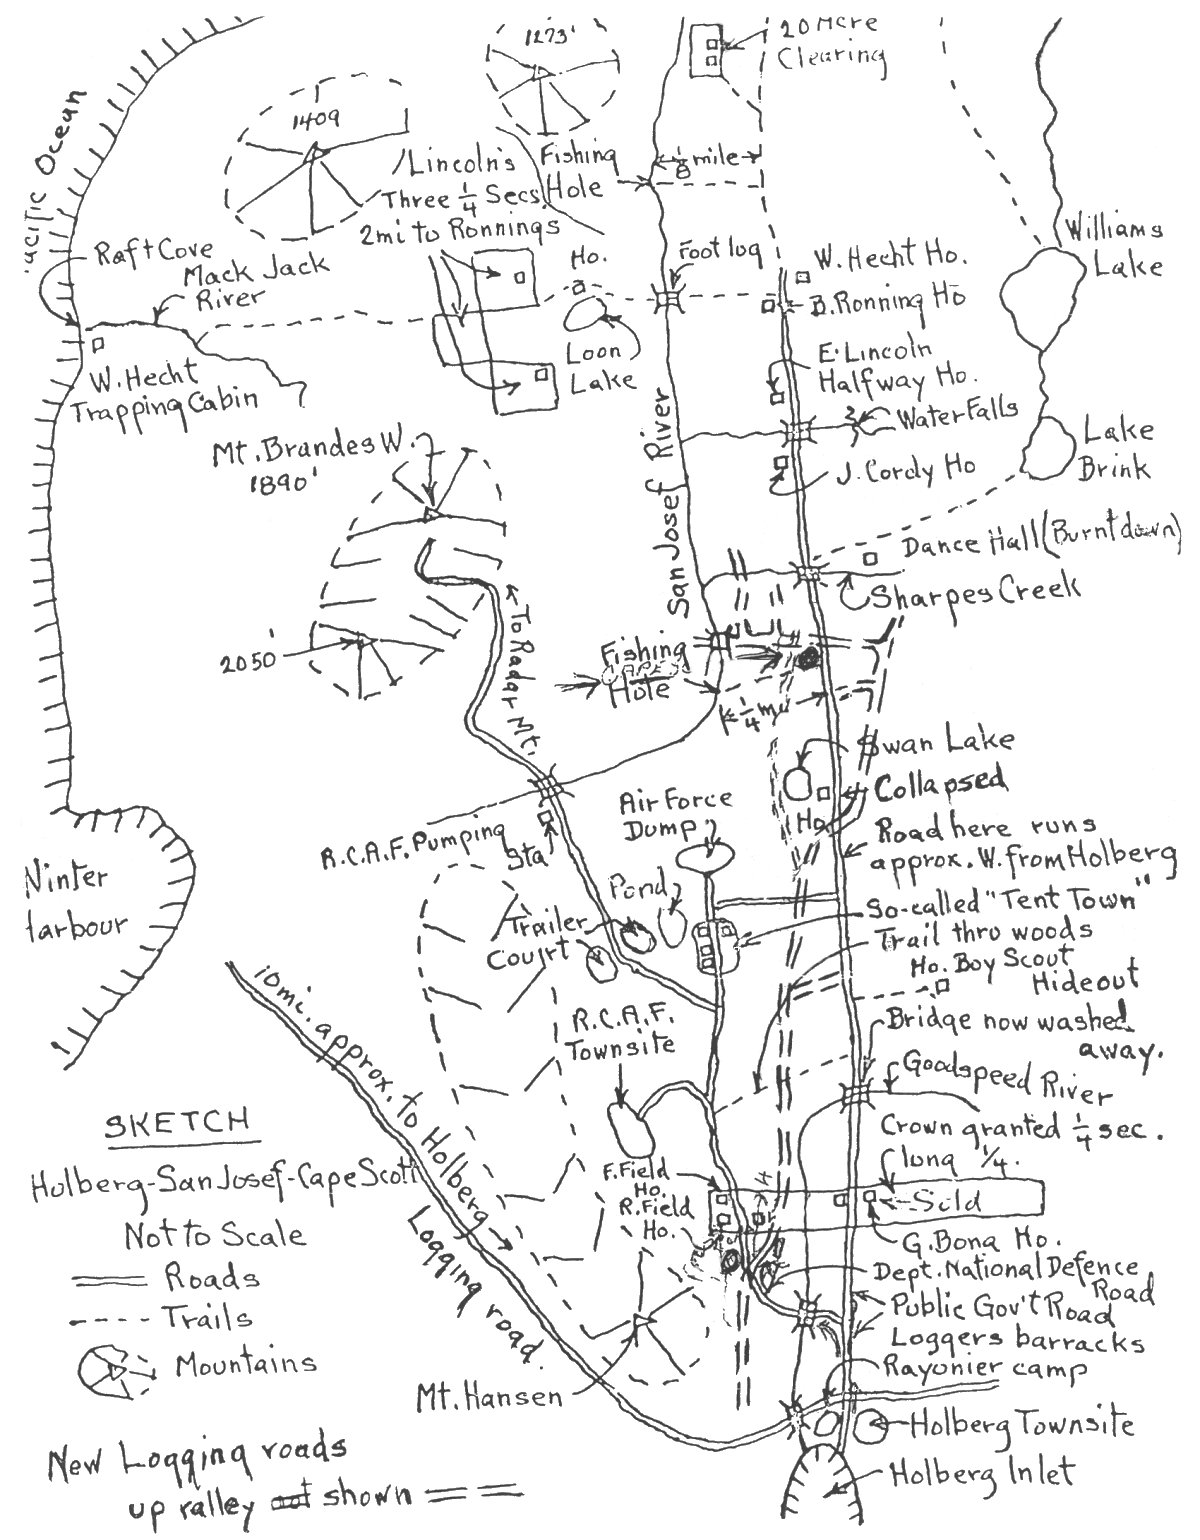 1273'
20 Acre
Clearing
1409
Pacific Ocean
Lincoln's
Three 1/4 Secs
2mi to Ronnings
Fishing
Hole
1/8 mile
Raft Cove
Mack Jack
River
Ho.
Foot log
W. Hecht Ho.
B. Ronning Ho
Williams
Lake
Loon
Lake
W. Hecht
Trapping Cabin
E. Lincoln
Halfway Ho.
Water Falls
J. Cordy Ho
Lake
Brink
Mt. Brandes W.
1890'
San Josef River
Dance Hall (Burnt down)
Sharpes Creek
2050'
To Radar Mt.
Fishing
Hole
1/4 mi
Swan Lake
Collapsed
Ho.
Road here runs
approx. W. from Holberg
Air Force
Dump
R.C.A.F. Pumping
Sta
Winter
Harbour
Pond
Trailer
Court
So-called "Tent Town"
Trail thru woods
Ho. Boy Scout
Hideout
R.C.A.F.
Townsite
Bridge now washed
away.
Goodspeed River
Crown granted 1/4 sec.
long 1/4.
Sold
10mi. approx. to Holberg
Logging road.
F. Field
Ho.
R. Field
Ho.
G. Bona Ho.
Dept. National Defence
Road
Public Gov't Road
Loggers barracks
Rayonier camp
Mt. Hansen
Holberg Townsite
Holberg Inlet
SKETCH
Holberg-San Josef-Cape Scott
Not to Scale
Roads
Trails
Mountains
New Logging roads
up valley not shown